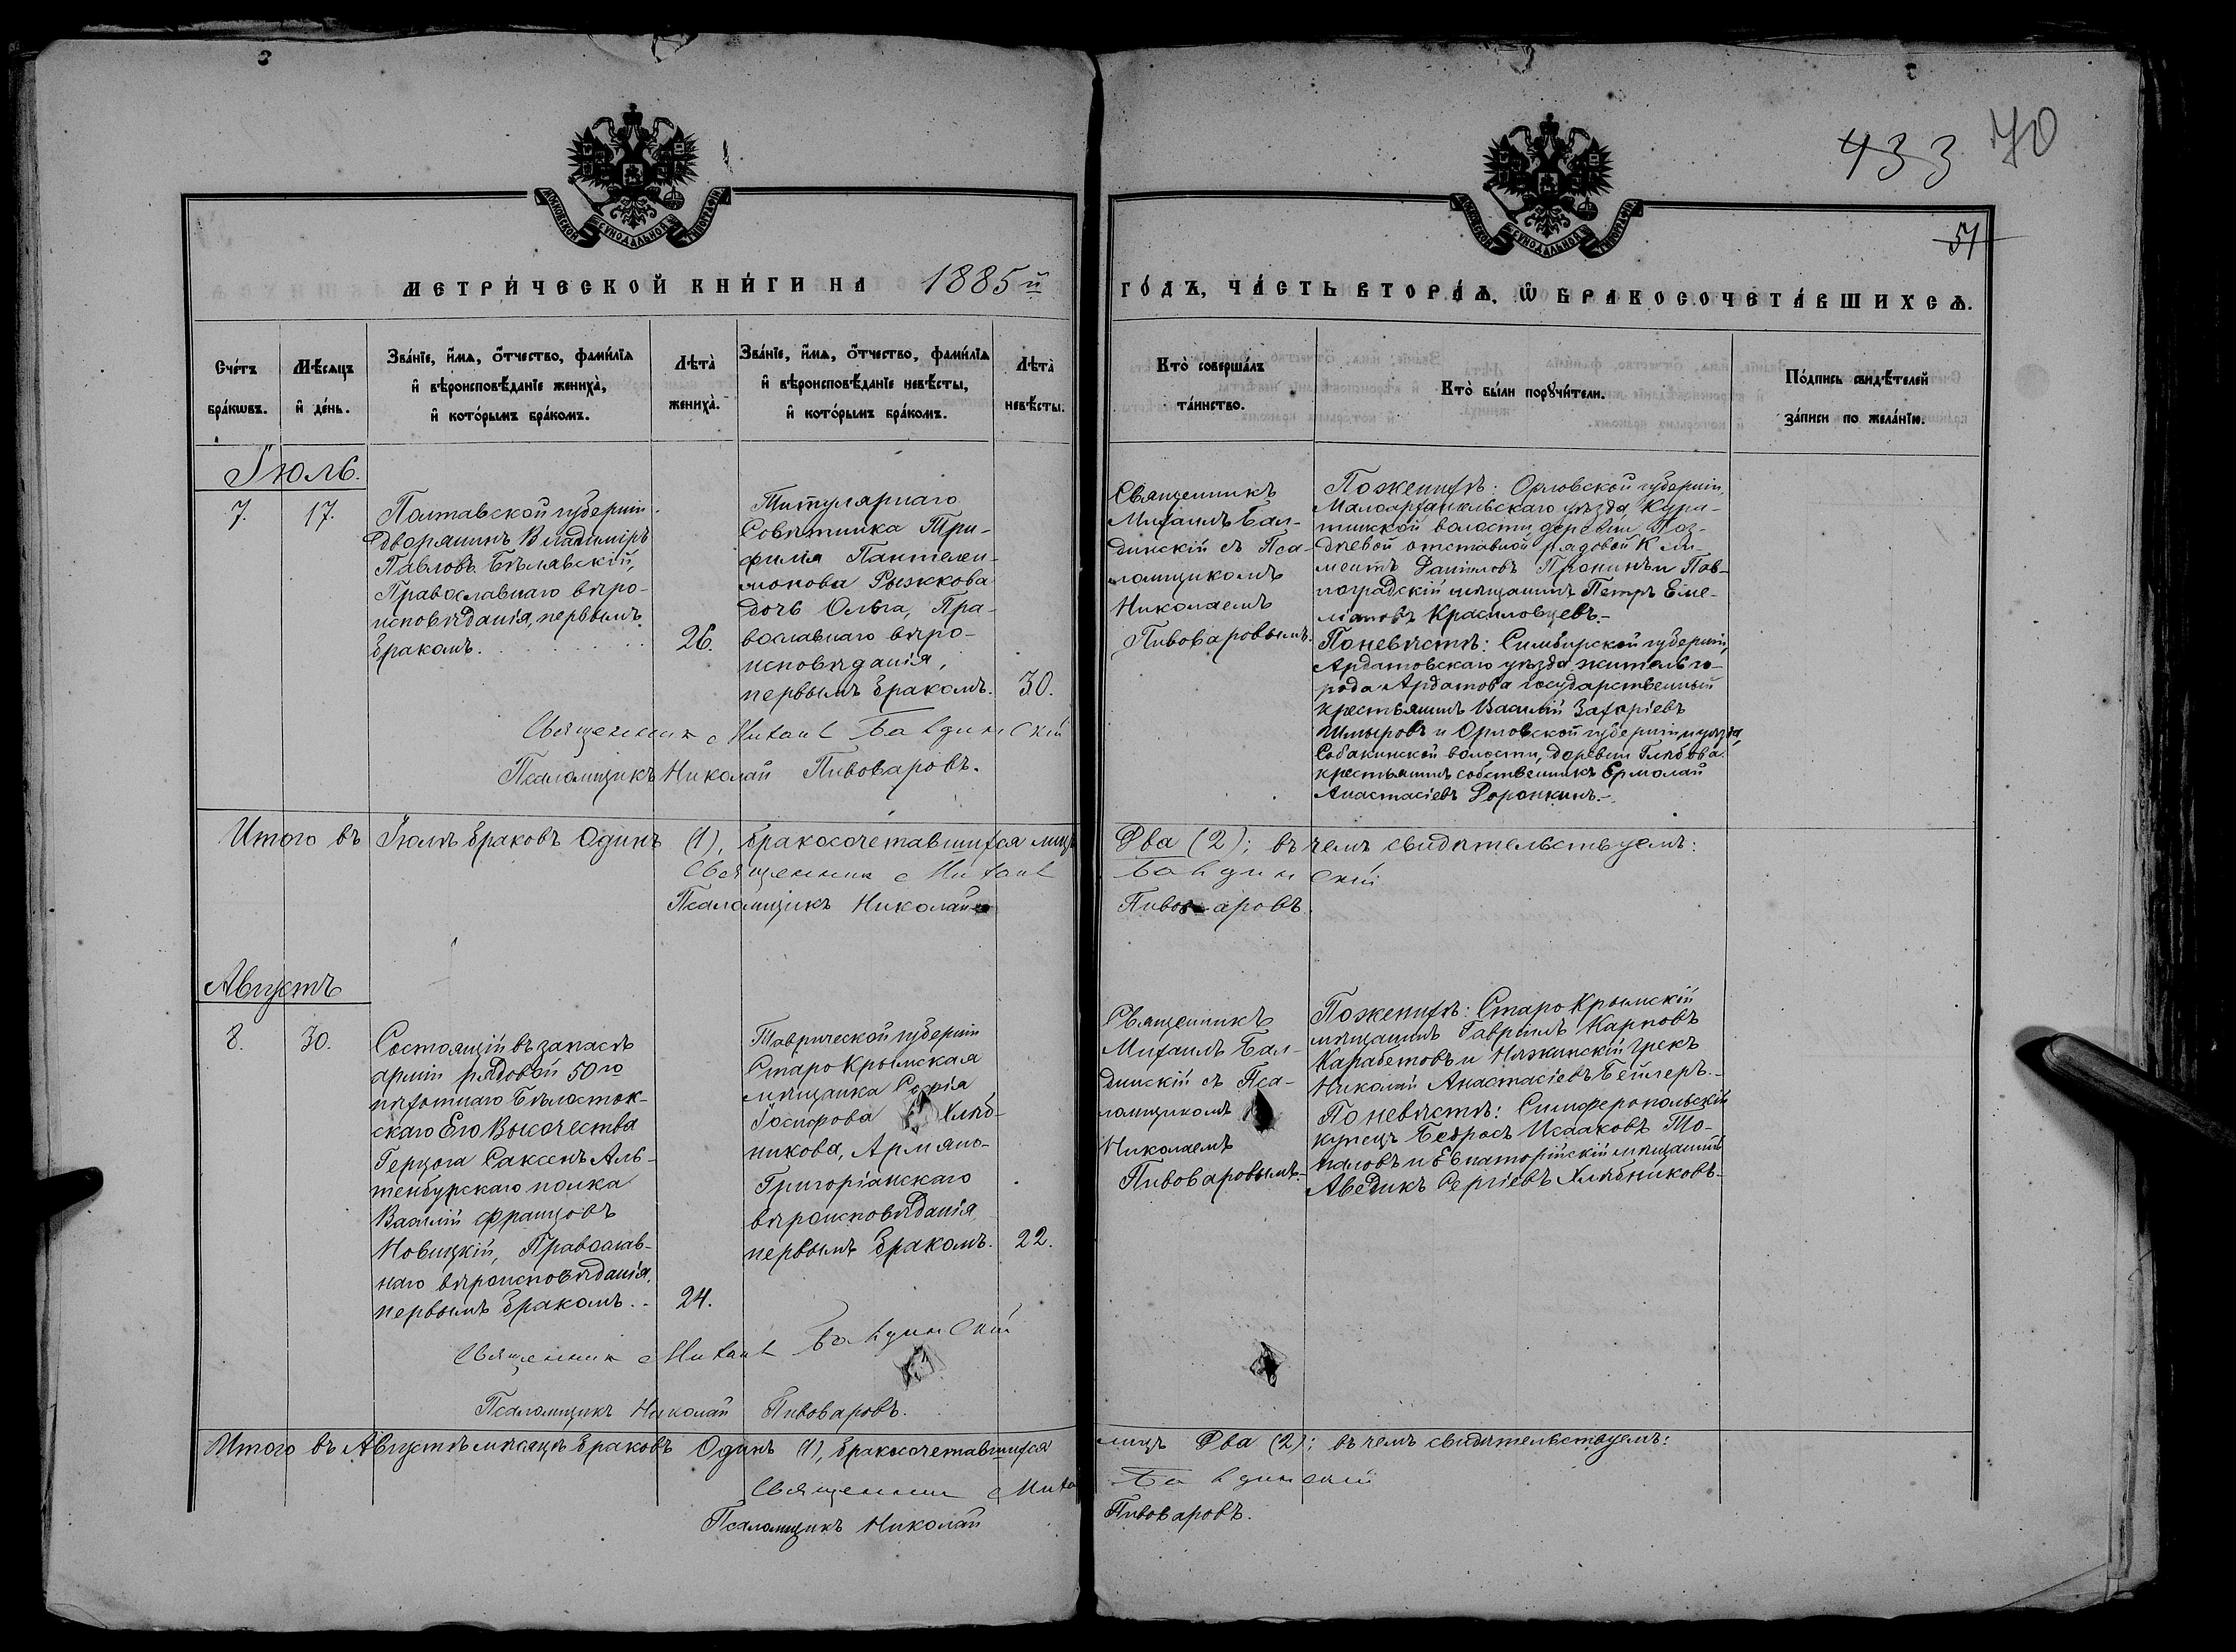 433 70
51
МОСКОВСКОЙ СѴНОДАЛЬНОЙ ТИПОГРАФІИ
МОСКОВСКОЙ СѴНОДАЛЬНОЙ ТИПОГРАФІИ
МЕТРИ́ЧЕСКОЙ КНИ́ГИ НА 1885й
ГО́ДЪ, ЧА́СТЬ ВТОРА́Ѧ, Ѡ҆ БРАКОСОЧЕТА́ВШИХСѦ.
Сче́тъ
бра́кѡвъ.
Мѣ́сѧцъ
и҆ де́нь.
Зва́нїе, и҆́мѧ, ѻ҆́тчество, фами́лїѧ
и҆ вѣроисповѣ́данїе жениха̀,
и҆ кото́рымъ бра́комъ.
Лѣта̀
жениха̀.
Зва́нїе, и҆́мѧ, ѻ҆́тчество, фами́лїѧ
и҆ вѣроисповѣ́данїе невѣ́сты,
и҆ кото́рымъ бра́комъ.
Лѣта̀
невѣ́сты.
Кто̀ соверша́лъ
та́инство.
Кто̀ бы́ли порꙋчи́тели.
По́дпись свидѣ́телей
за́писи по жела́нїю.
Іюль.
7.
17.
Полтавской губерніи
дворянинъ Владиміръ
Павловъ Бѣлявскій,
Православнаго вѣро-
исповѣданія, первымъ
бракомъ.
26.
Титулярнаго
Совѣтника Три-
филія Пантелеи-
монова Рыжкова
дочь Ольга, Пра-
вославнаго вѣро-
исповѣданія,
первымъ бракомъ.
30.
Священникъ
Михаилъ Бал-
динскій съ Пса-
ломщикомъ
Николаемъ
Пивоваровымъ.
По женихѣ: Орловской губерніи,
Малоархангельскаго уѣзда, Кури-
тинской волости, деревни Поз-
дѣевой отставной рядовой Кли-
ментъ Даніиловъ Пронинъ и Пав-
лоградскій мѣщанинъ Петръ Еме-
ліановъ Красиловцевъ-
По невѣстѣ: Симбирской губерніи,
Ардатовскаго уѣзда, житель го-
рода Ардатова государственный
крестьянинъ Василій Захаріевъ
Шмыровъ и Орловской губерніи и уѣзда,
Собакинской волости, деревни Глѣбова
крестьянинъ собственникъ Ермолай
Анастасіевъ Доронкинъ.-
Священникъ Михаил Балдинскій
Псаломщикъ Николай Пивоваровъ.
Итого въ Іюлѣ браковъ Одинъ (1), бракосочетавшихся лицъ Два (2); въ чемъ свидѣтельствуемъ:
Священник Михаил Балдинскій
Псаломщикъ Николай Пивоваровъ.
Августъ
8.
30.
Состоящій въ запасѣ
арміи рядовой 50го
пѣхотнаго Бѣлосток-
скаго Его Высочества
Герцога Саксенъ Аль-
тенбурскаго полка
Василій Францовъ
Новицкій, Православ-
наго вѣроисповѣданія,
первымъ бракомъ..
24.
Таврической губерніи
Старо Крымская
мѣщанка Софія
Госпорова Хлѣб-
никова, Армяно-
Григоріанскаго
вѣроисповѣданія,
первымъ бракомъ.
22.
Священникъ
Михаилъ Бал-
динскій съ Пса-
ломщикомъ
Николаемъ
Пивоваровымъ.
По женихѣ: Старо Крымскій
мѣщанинъ Гавріилъ Карповъ
Карабетовъ и Нѣжинскій Грекъ
Николай Анастасіевъ Бейлеръ.-
По невѣстѣ: Симферопольскій
купецъ Бедросъ Исааковъ То-
паловъ и Евпаторійскій мѣщанинъ
Аведикъ Сергіевъ Хлѣбниковъ.
Священник Михаил Балдинскій
Псаломщикъ Николай Пивоваровъ.
Итого въ Августѣ мѣсяцѣ браковъ Одинъ (1), бракосочетавшихся лицъ Два (2); въ чемъ свидѣтельствуемъ:
Священник Миха Балдинскій
Псаломщикъ Николай Пивоваровъ.